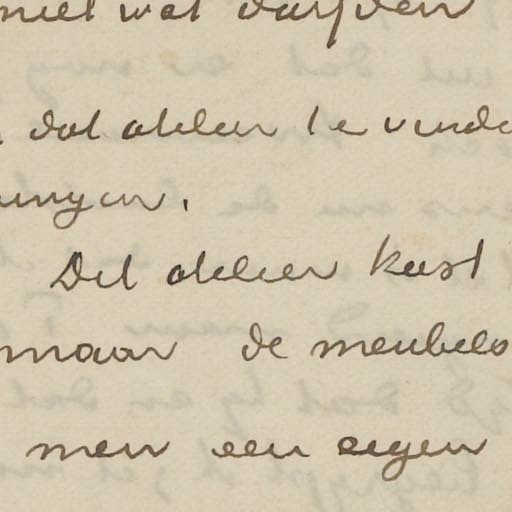 niet wat durfden
dat atelier te vinde
ningen.
Dit atelier kost
maar de meubels
men een eigen